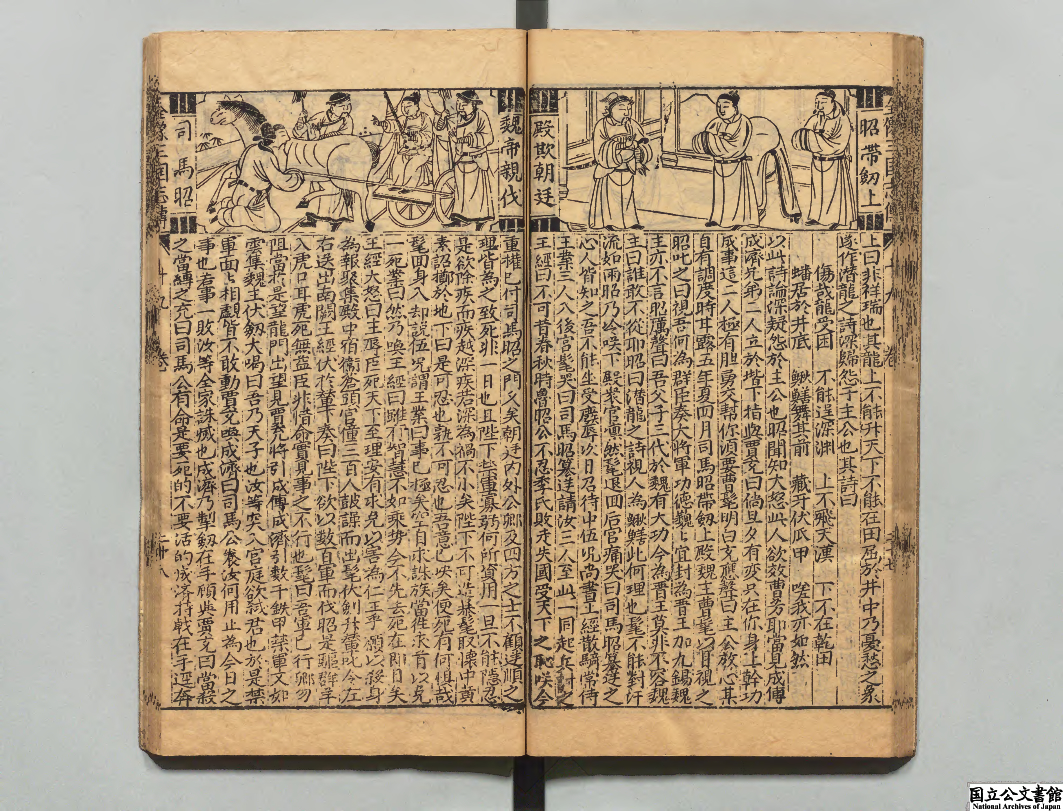 昭帶劒上
殿欺朝廷
上曰非祥瑞也其龍上不能升天下不能在田屈於井中乃憂愁之象
遂作潜龍之詩深歸怨于主公也其詩曰
傷哉龍受困　不能逞深淵　上不飛天漢　下不在乾田
蟠居於井底　鰍鱔舞其前　藏牙伏爪甲　嗟我亦如然
以此詩論深疑怨於主公也昭聞知大怒此人欲放曹芳耶當見成倅
成濟兄弟二人立於堦下指與賈充曰倘旦夕有变只在你身上幹功
成事這二人極有胆勇交幇你須要曹髦明白充應聲曰主公放心某
自有調度時甘露五年夏四月司馬昭帶劒上殿魏主曹髦以目視之
昭叱之曰視吾何為群臣奏大將軍功德巍巍上宜封為晋王加九錫魏
主亦不言昭厲聲曰吾父子三代於魏有大功今為晋王莫非不容魏
主曰誰敢不從耶昭曰潛龍之詩視人為鰍鱔此何理也髦不能對汗
流如雨昭乃冷咲下殿衆官凜然髦退囬后宫痛哭曰司馬昭簒逆之
心人皆知之吾不能坐受廢辱次日召待中伍况尚書王經散騎常侍
王業三人入後宮髦哭曰司馬昭篡逆請汝三人至此一同起兵討之
王經曰不可昔春秋時魯昭公不忍季氏敗走失國受天下之恥咲今
魏帝親伐
司馬昭
重權已付司馬昭之門久矣朝廷内外公卿及四方之士不顧逆順之
理皆為之致死非一日也且陛下士軍寡弱何所資用一旦不能隱忍
是欲除疾而疾越深疾若深為禍不小矣陛下不可造次髦取懷中黄
素詔擲於地下曰是可忍也孰不可忍也吾意已决矣便死有何惧哉
髦囬身入却說伍况謂王業曰事已極矣空自求誅族當徃求首以免
一死業曰然乃喚王經曰雖有智慧不如乘势今不先去死在即目矣
王經大怒曰主辱臣死天下至理安有求免以害為仁乎顧以殘身
為報聚集殿中宿衛蒼頭官僮三百人鼓譟而出髦伏劍升輦叱令左
右送出南闕王經伏於輦下奏曰陛下欲以数百軍而伐昭是驅群羊
入虎口耳虎死無益臣非惜命實見事之不行也髦曰吾軍已行卿勿
阻當於是望龍門出望見賈充將引成倅成濟引數千鉄甲禁軍文如
雲集魏主伏劒大喝曰吾乃天子也汝等突入宫庭欲弒君也於是禁
軍面上相覷皆不敢動賈充喚成濟曰司馬公养汝何用止為今日之
事也若事一敗汝等全家誅㓕也成濟乃掣劒在手顧與賈充曰當殺
之當縛之充曰司馬公有命是要死的不要活的成濟持戟在手逕奔
卷
卷
国立公文書館
National Archives of Japan